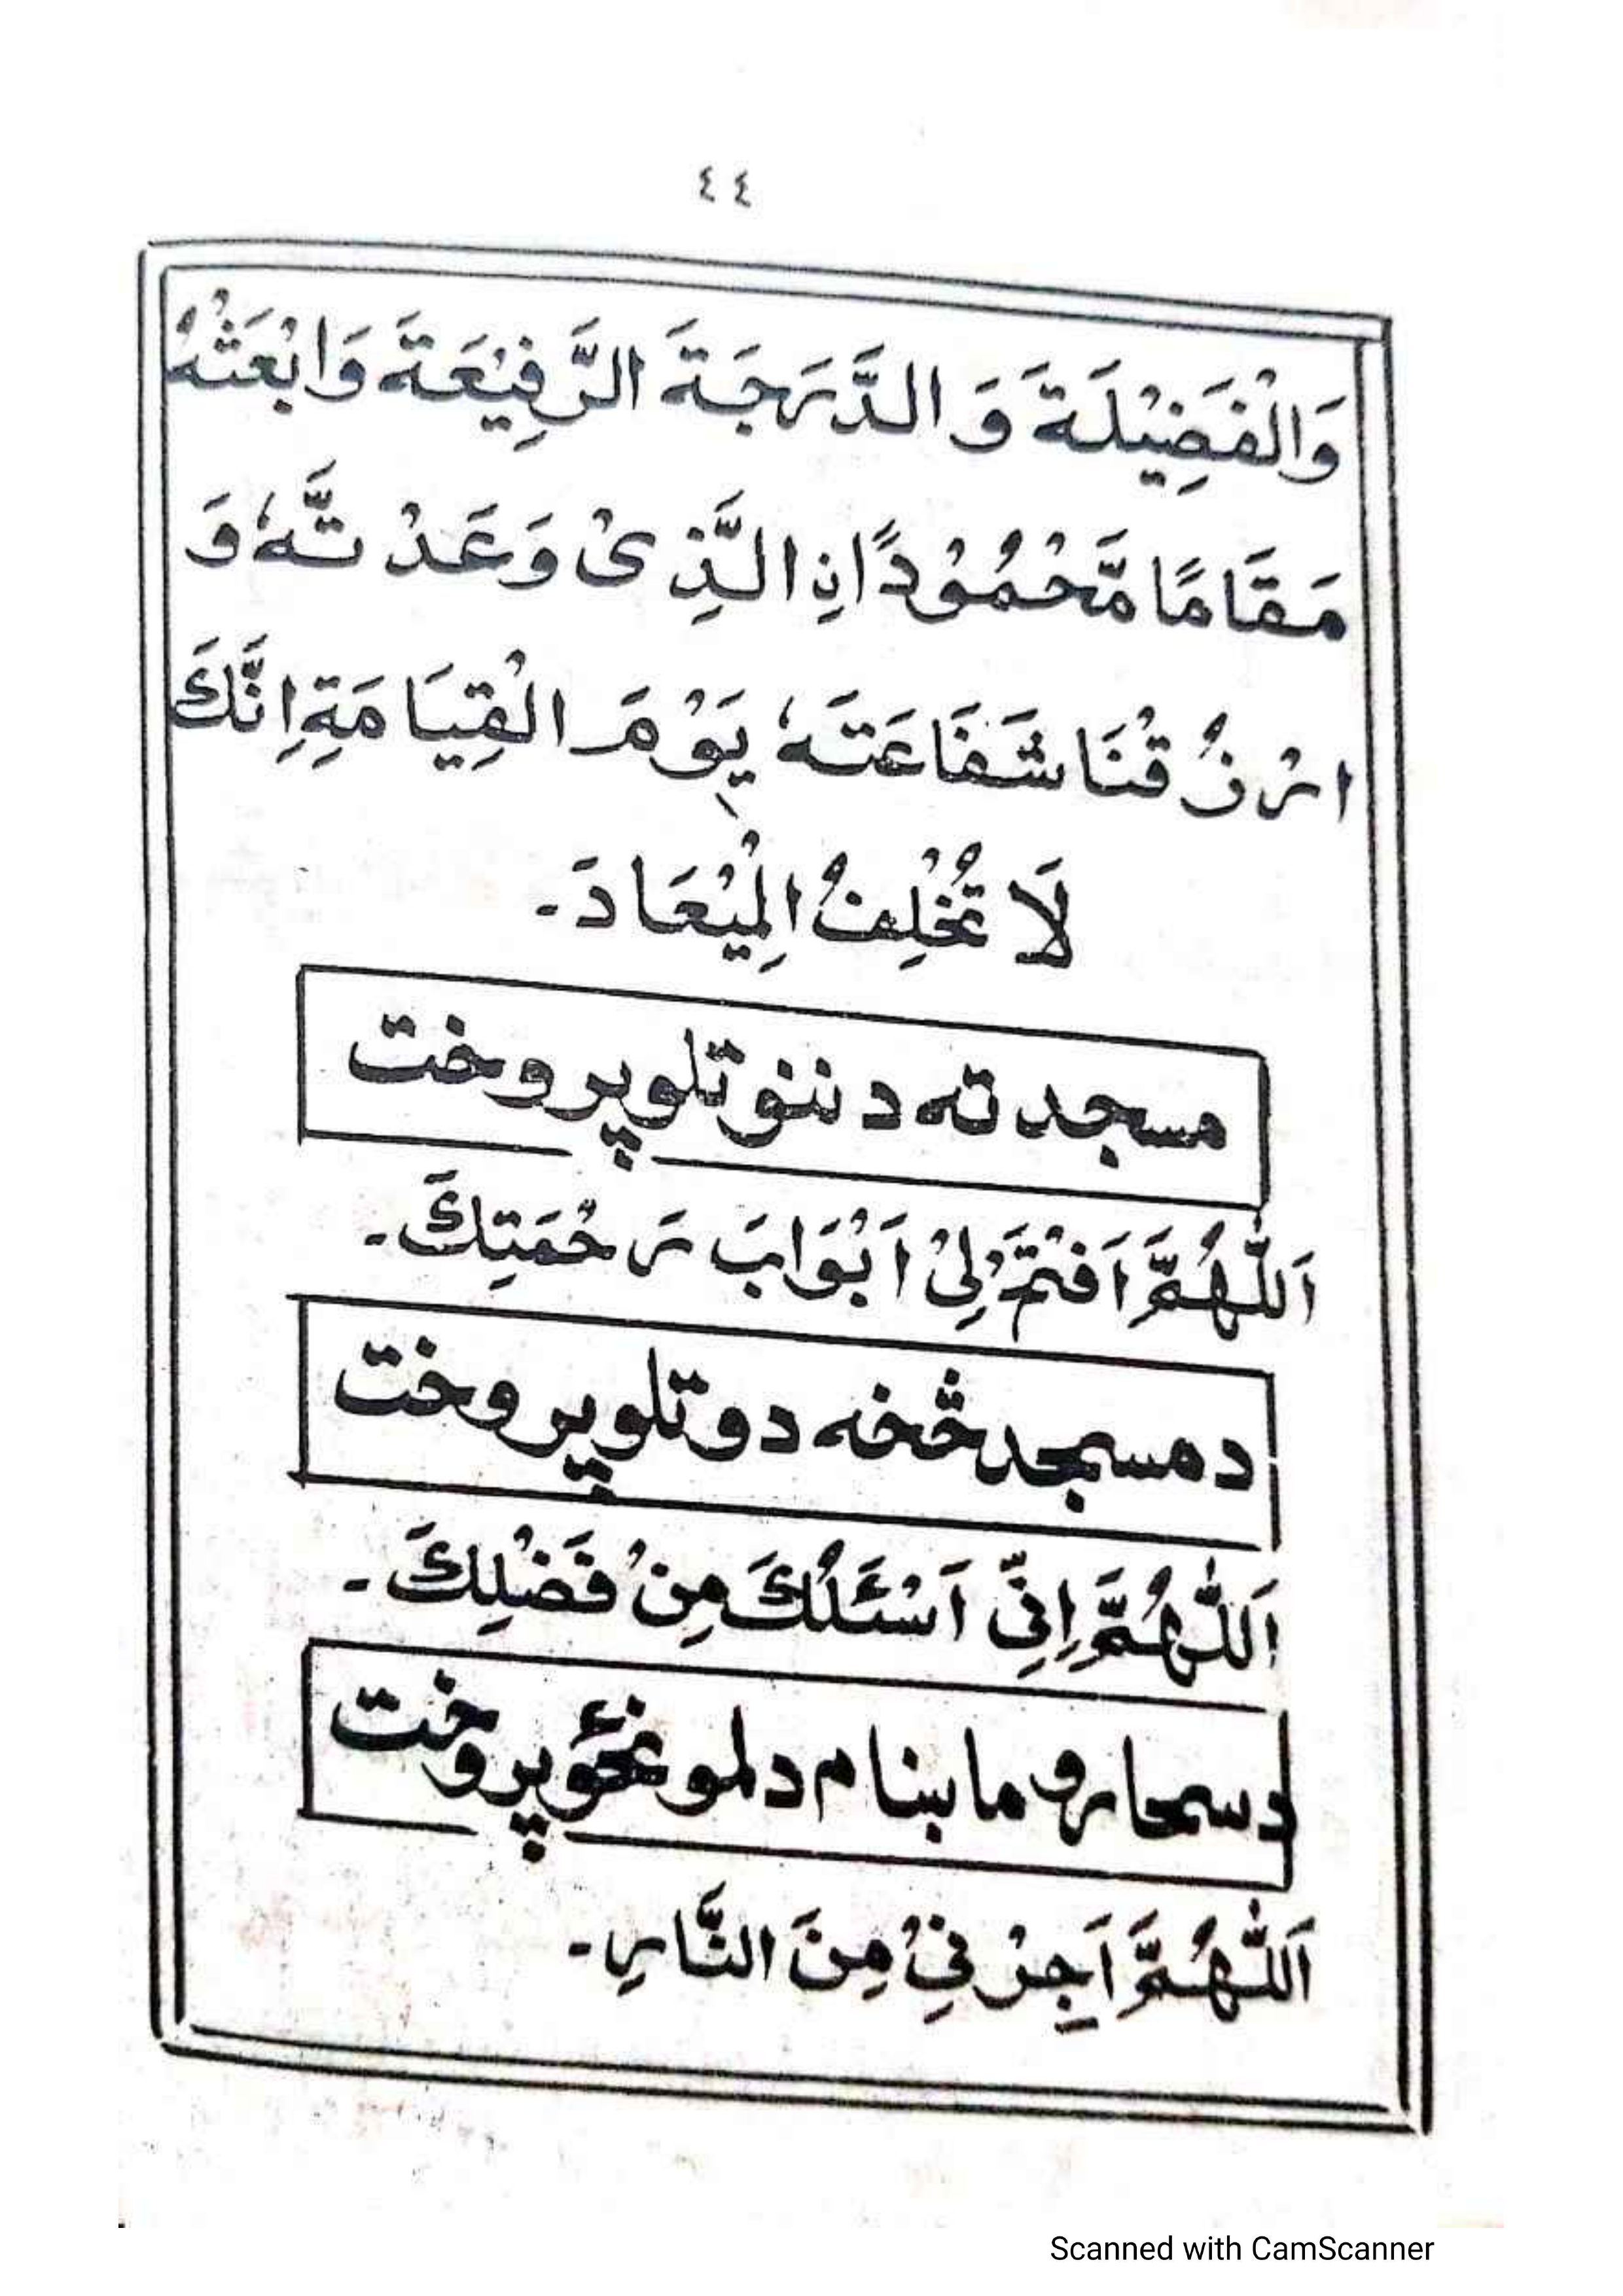 ٤٤
وَالْفَضِيْلَةَ وَ الدَّرَجَةَ الرَّفِيْعَةَ وَابْعَثْهُ
مَقَامًا مَّحْمُوْدًا نِ الَّذِىْ وَعَدْتَّهٗ وَ
ارْزُقْنَا شَفَاعَتَهٗ يَوْمَ الْقِيَامَةِ اِنَّكَ
لَا تُخْلِفُ الْمِيْعَادَ۔
مسجد ته د ننوتلو پر وخت
اَللّٰهُمَّ اَفْتَحْ لِىْ اَبْوَابَ رَحْمَتِكَ۔
د مسجد څخه د وتلو پر وخت
اَللّٰهُمَّ اِنِّىْ اَسْئَلُكَ مِنْ فَضْلِكَ۔
د سحار و ماښام د لمونځو پر وخت
اَللّٰهُمَّ اَجِرْنِىْ مِنَ النَّارِ۔
Scanned with CamScanner